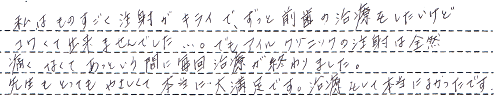 私はものすごく注射がキライで、ずっと前歯の治療をしたいけど
コワくて出来ませんでした…。でもアイルクリニックの注射は全然
痛くはなくてあっという間に毎回治療が終わりました。
先生もとってもやさしくて本当に大満足です。治療して本当によかったです。